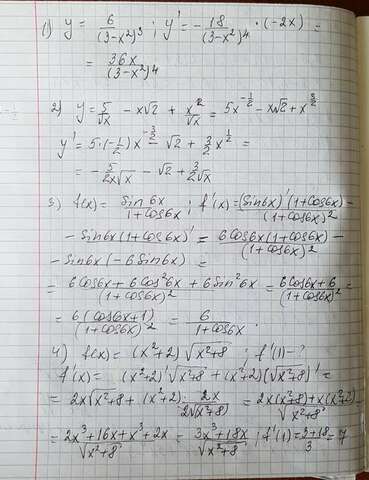 1) y = 6/(3-x²)³ ; y' = - 18/(3-x²)⁴ · (-2x) =
= 36x/(3-x²)⁴
2) y = 5/√x - x√2 + x²/√x = 5x^(-1/2) - x√2 + x^(3/2)
y' = 5·(-1/2)x^(-3/2) - √2 + 3/2 x^(1/2) =
= - 5/(2x√x) - √2 + 3/2 √x
3) f(x) = sin6x/(1+cos6x) ; f'(x) = (sin6x)'(1+cos6x) -/(1+cos6x)²
- sin6x(1+cos6x)' = 6cos6x(1+cos6x) -/(1+cos6x)²
- sin6x(-6sin6x) =
= (6cos6x + 6cos²6x + 6sin²6x)/(1+cos6x)² = (6cos6x+6)/(1+cos6x)² =
= 6(cos6x+1)/(1+cos6x)² = 6/(1+cos6x) .
4) f(x) = (x²+2)√(x²+8) ; f'(1) - ?
f'(x) = (x²+2)'√(x²+8) + (x²+2)(√(x²+8))' =
= 2x√(x²+8) + (x²+2)· 2x/(2√(x²+8)) = (2x(x²+8)+x(x²+2))/√(x²+8) =
= (2x³+16x+x³+2x)/√(x²+8) = (3x³+18x)/√(x²+8) ; f'(1) = (3+18)/3 = 7